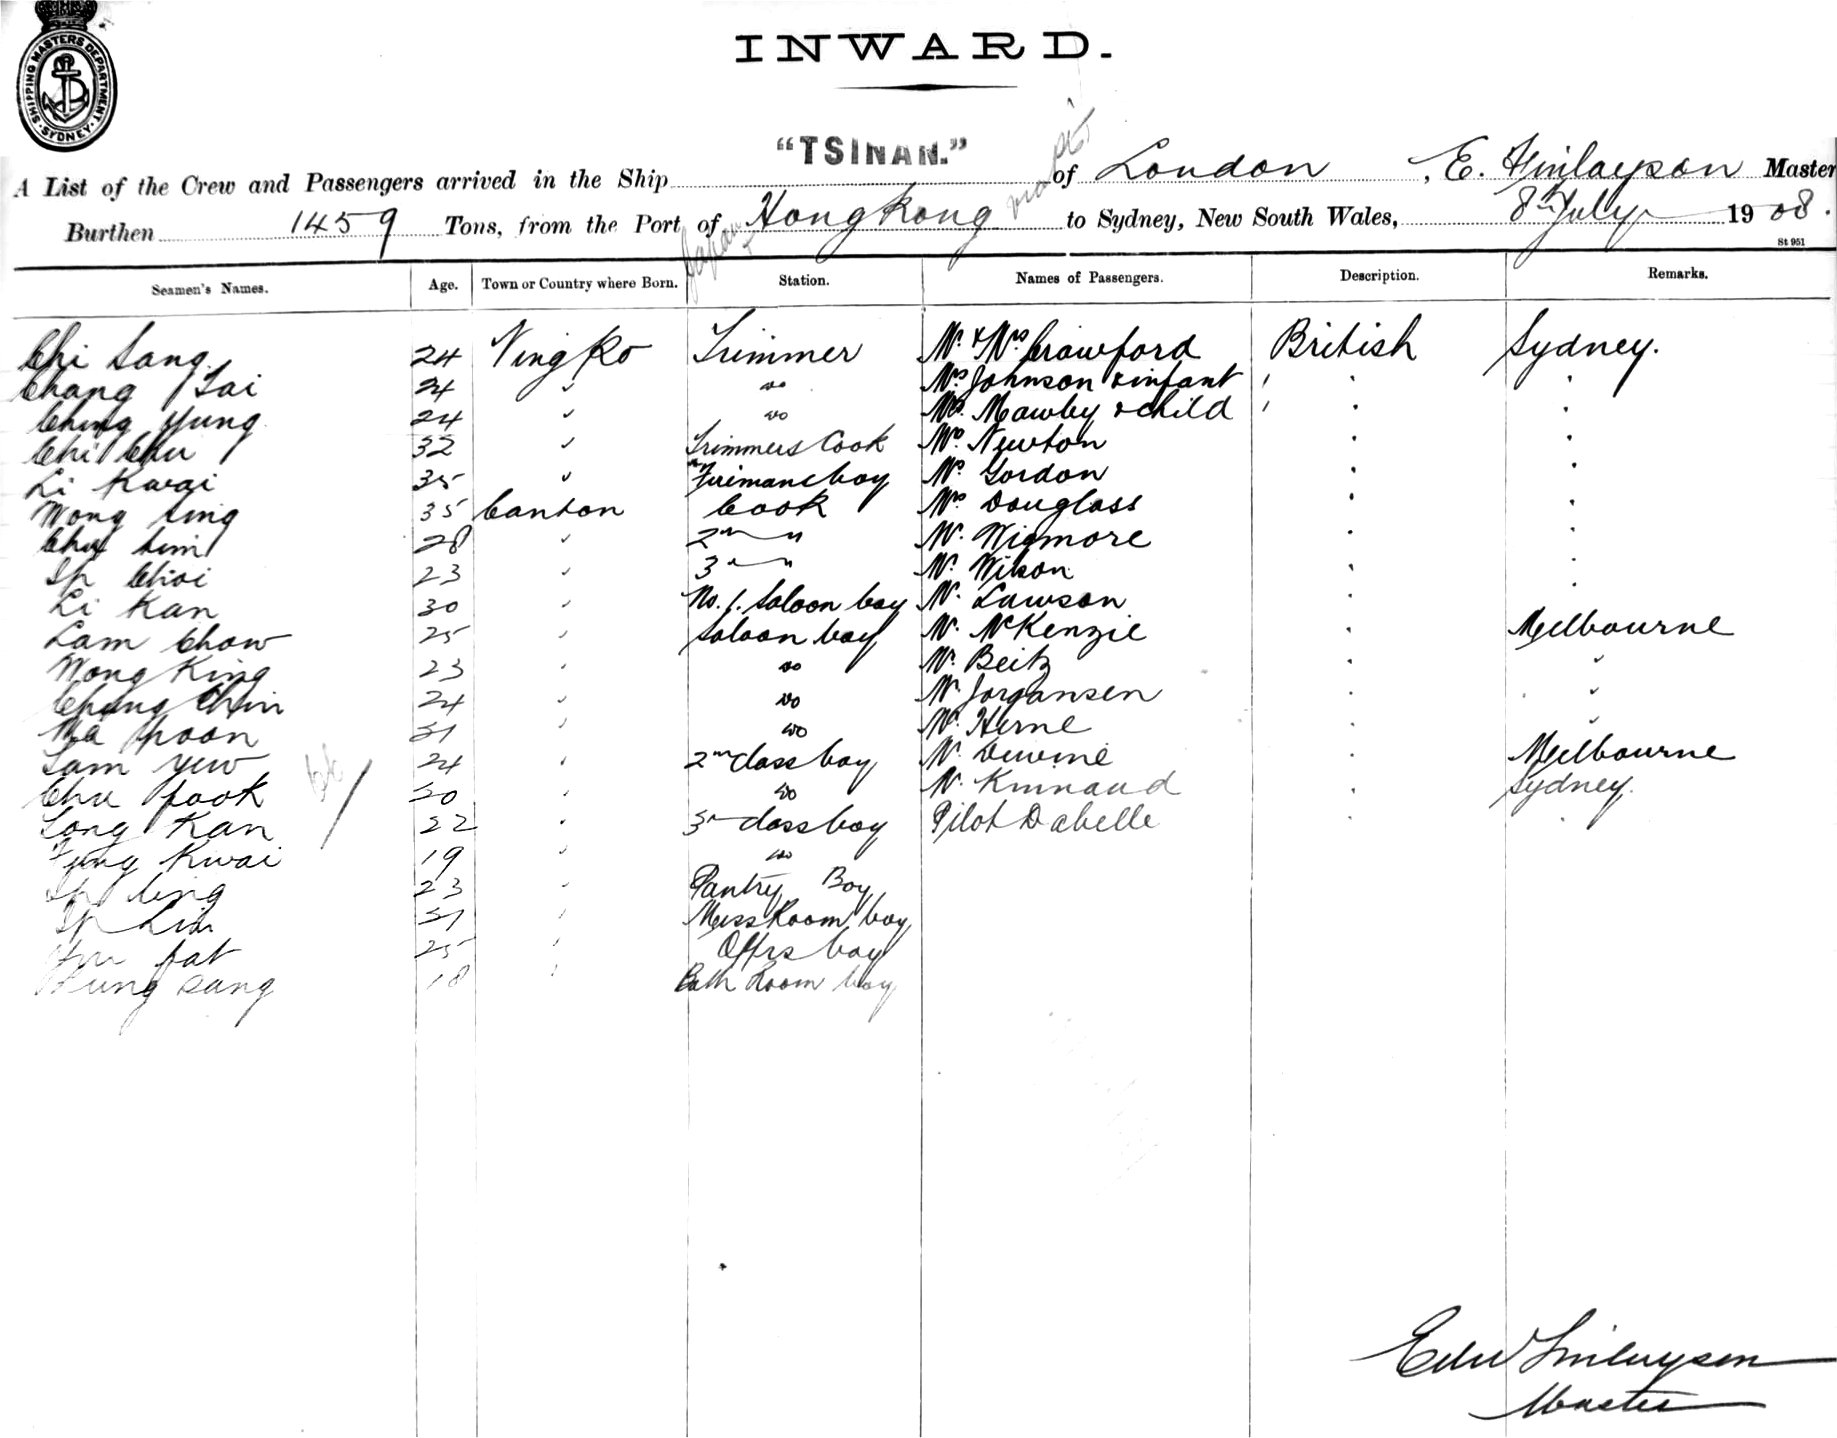 SHIPPING MASTERS DEPARTMENT
SYDNEY
INWARD.
"TSINAN."
A List of the Crew and Passengers arrived in the Ship of London, E. Finlayson Master
Burthen 1459 Tons, from the Port of Japan + Hongkong via to Sydney, New South Wales, 8th July 1908.
St 951
Seamen's Names. Age. Town or Country where Born. Station. Names of Passengers. Description. Remarks.
Chi Sang 24 Ningko Trimmer Mr & Mrs Crawford British Sydney.
Chang Tai 24 " do Mrs Johnson & infant " "
Ching Yung 24 " do Mrs. Mawby & child " "
Chi Chu 32 " Trimmers Cook Newton " "
Li Kwai 35 " Firemans boy Gordon " "
Wong Sing 35 Canton Cook Mrs Douglass " "
Chu Sim 28 " 2nd " Mr. Wigmore " "
Ip Choi 23 " 3rd " Mr. Wilson " "
Li Kan 30 " No. 1. Saloon boy Mr. Lawson " "
Lam Chow 25 " Saloon boy Mr. McKenzie " Melbourne
Wong King 23 " do Mr. Beitz " "
Chung Chin 24 " do Mr. Jorgansen " "
Ma Poon 31 " do Mr. Herne " "
Sam Yew 24 " 2nd class boy Mr. " Melbourne
Chu Fook 30 " do Mr. Kinnaud " Sydney.
Kan 22 " 3rd class boy Pilot Dabelle " "
Fung Kwai 19 " do
Ip Ling 23 " Pantry Boy
Ip Lin 31 " Mess Room boy
Fat 25 " Offrs boy
Sang 18 " Bath Room boy
Edw Finlayson
Master